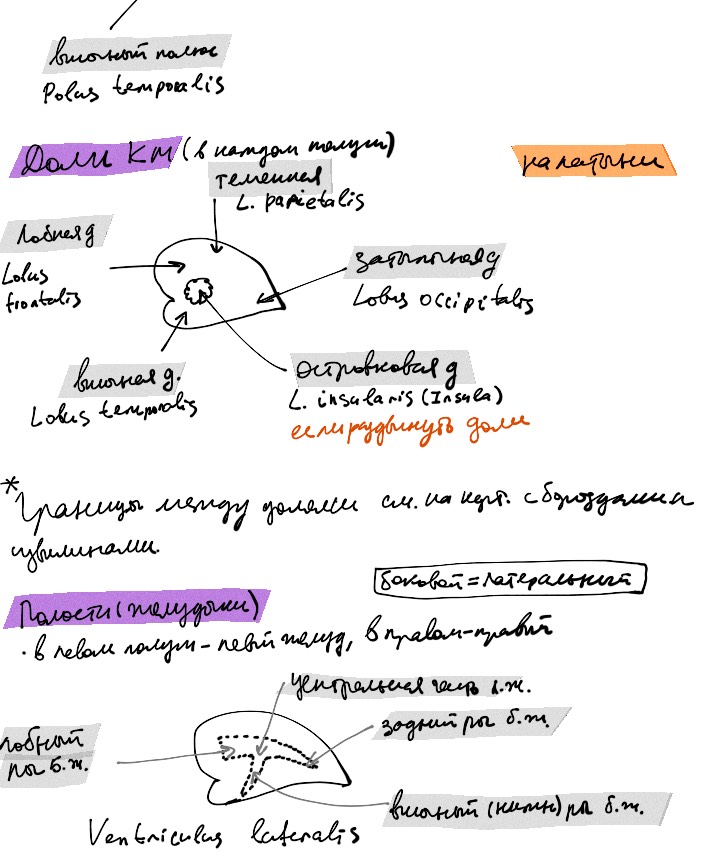 височный полюс
Polus temporalis
Доли КМ (в каждом полуш)
на латыни
теменная
L. parietalis
Лобная д
Lobus
frontalis
затылочная д
Lobus occipitalis
височная д.
Lobus temporalis
островковая д
L. insularis (Insula)
если раздвинуть доли
*Границы между долями см. на карт. с бороздами и
извилинами.
боковой = латеральный
Полости (желудочки)
· в левом полуш - левый желуд, в правом - правый
центральная часть б.ж.
задний рог б.ж.
лобный
рог б.ж.
височный (нижн) рог б.ж.
Ventriculus lateralis